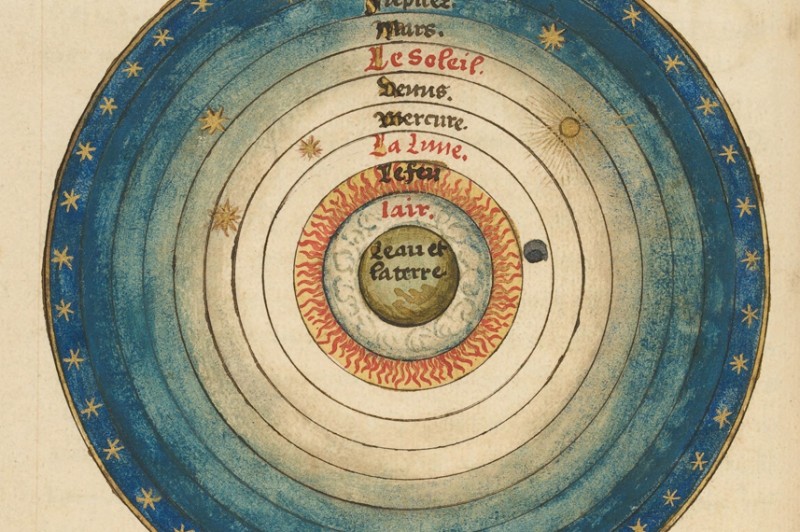 Jupiter
Mars.
Le Soleil.
Venus.
Mercure.
La Lune.
Le feu
lair.
Leau et
la terre